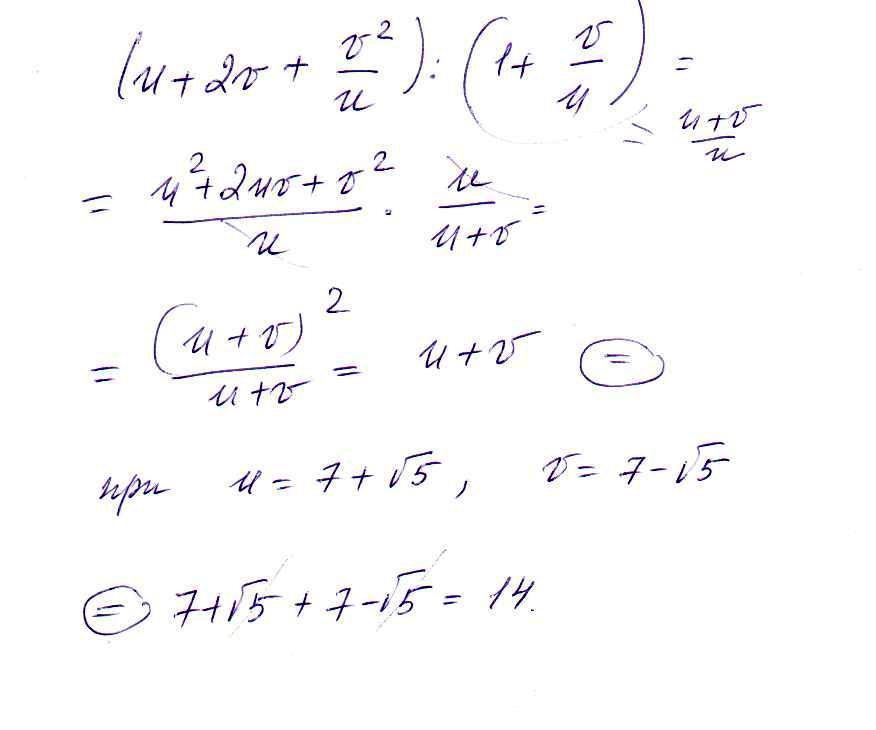 (u + 2v + v²/u) : (1 + v/u) =
= (u+v)/u
= (u² + 2uv + v²)/u · u/(u+v) =
= (u + v)²/(u+v) = u + v (=)
при u = 7 + √5, v = 7 - √5
(=) 7 + √5 + 7 - √5 = 14.